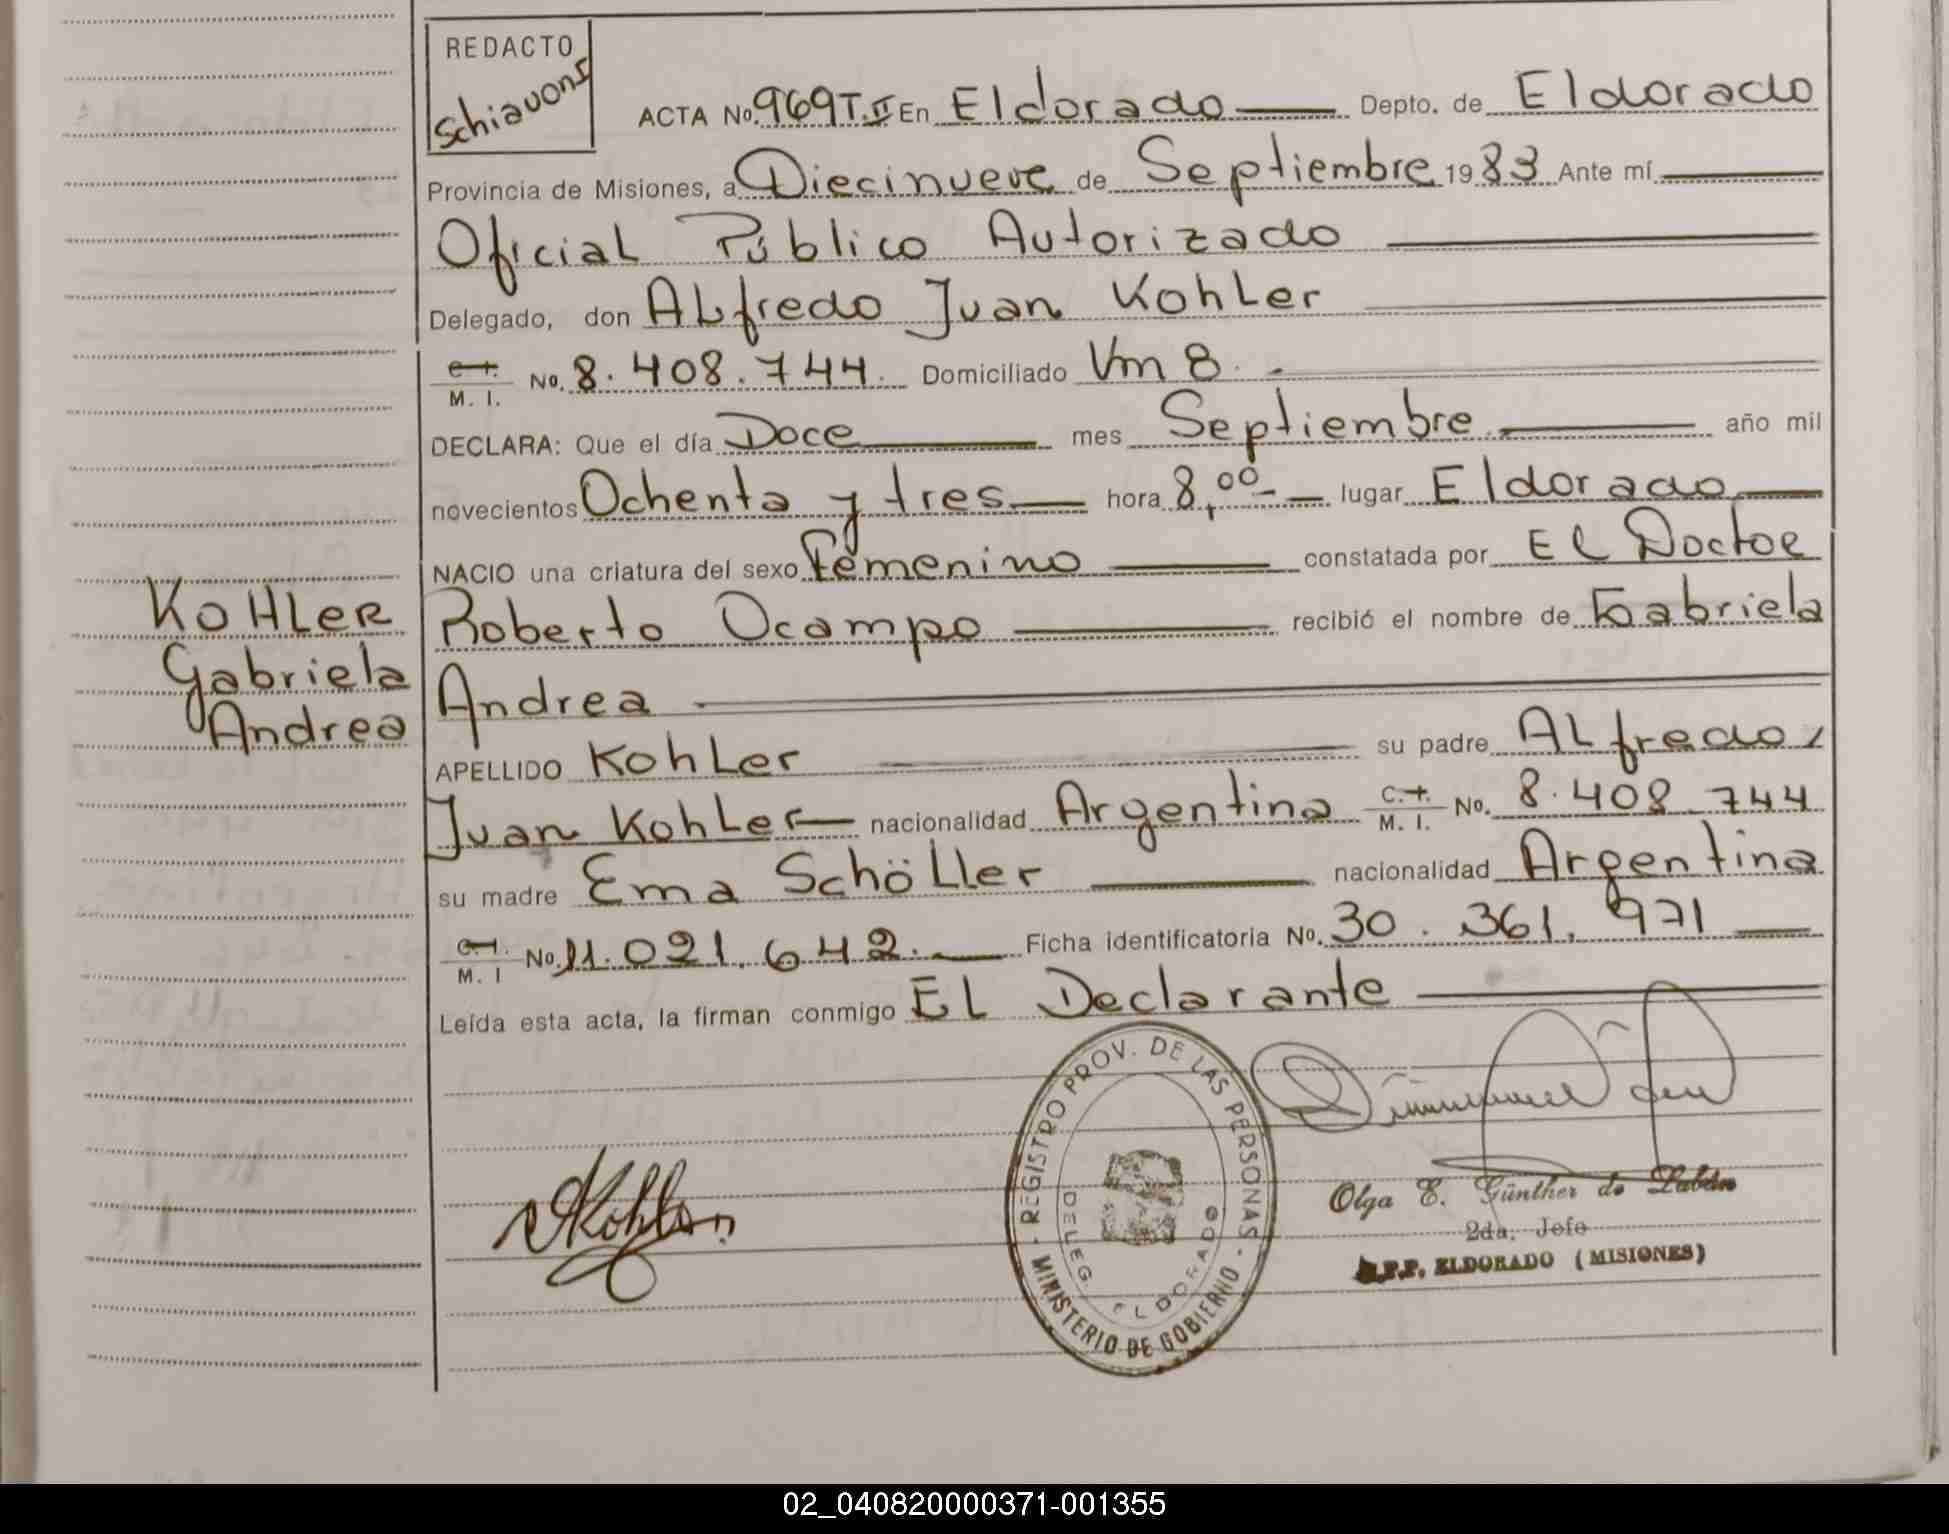 REDACTO
Schiavoni
ACTA No. 969 T.II En Eldorado Depto. de Eldorado
Provincia de Misiones, a Diecinueve de Septiembre 1983 Ante mí
Oficial Público Autorizado
Delegado, don ALfredo Juan KohLer
C.I. M. I. No. 8.408.744. Domiciliado Vm 8.
DECLARA: Que el día Doce mes Septiembre año mil
novecientos Ochenta y tres hora 8,00 lugar Eldorado
NACIO una criatura del sexo Femenino constatada por EL Doctor
Roberto Ocampo recibió el nombre de Gabriela
Andrea
KOHLER
Gabriela
Andrea
APELLIDO KohLer su padre ALfredo
Juan KohLer nacionalidad Argentina C.I. M. I. No. 8.408.744
su madre Ema SchöLler nacionalidad Argentina
C.I. M. I No. 11.021.642. Ficha identificatoria No. 30.361.971
Leída esta acta, la firman conmigo EL Declarante
REGISTRO PROV. DE LAS PERSONAS
MINISTERIO DE GOBIERNO
DELEG. ELDORADO
AKohler
Olga E. Günther de
2da. Jefe
ELDORADO (MISIONES)
02_040820000371-001355